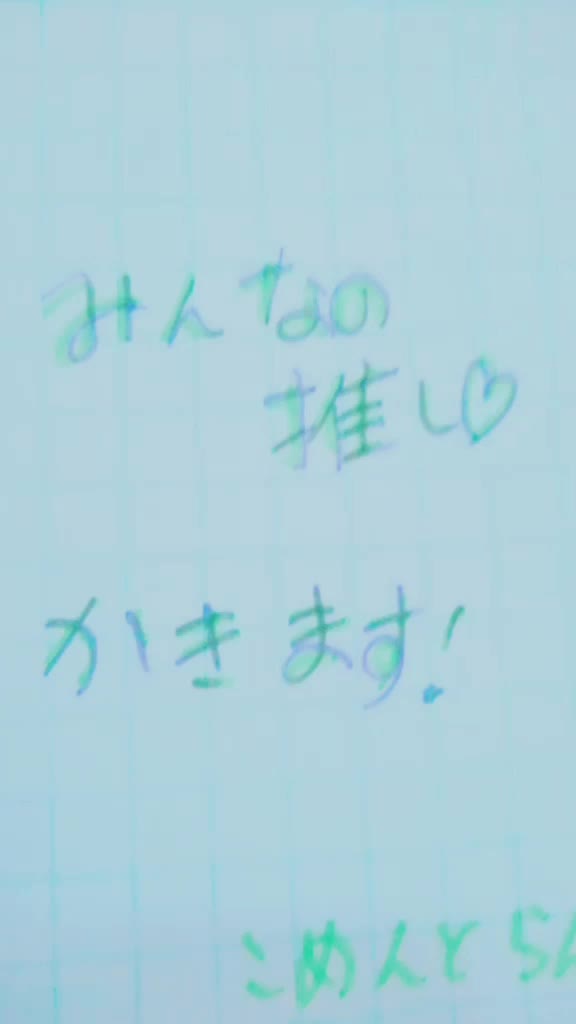 みんなの
推し♡
かきます!
こめんとらん